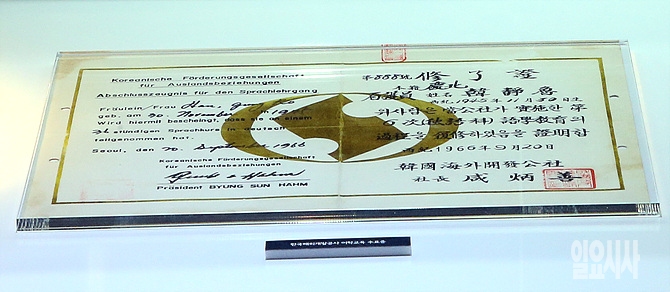 Koreanische Förderungsgesellschaft
für Auslandsbeziehungen
Abschlusszeugnis für den Sprachlehrgang
Fräulein/Frau Han,
geb. am 30. November 19
Wird hiermit bescheinigt, dass sie an einem
stündigen Sprachkurs in deutsch
teilgenommen hat.
Seoul, den 20. September 1966
Koreanische Förderungsgesellschaft
für Auslandsbeziehungen
Präsident BYUNG SUN HAHM
第888號 修了證
本籍 慶北
姓名 韓靜魯
西紀 1945年 11月 30日生
위 사람은 當公社가 實施한 第
6次 語學教育의
過程을 履修하였음을 證明함
西紀 1966年 9月 20日
韓國海外開發公社
社長 咸炳善
한국해외개발공사 어학교육 수료증
일요시사